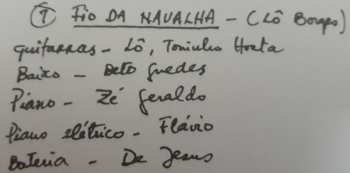 ⑦ FIO DA NAVALHA - (Lô Borges)
guitarras - Lô, Toninho Horta
Baixo - Beto Guedes
Piano - Zé Geraldo
Piano elétrico - Flávio
Bateria - De Jesus